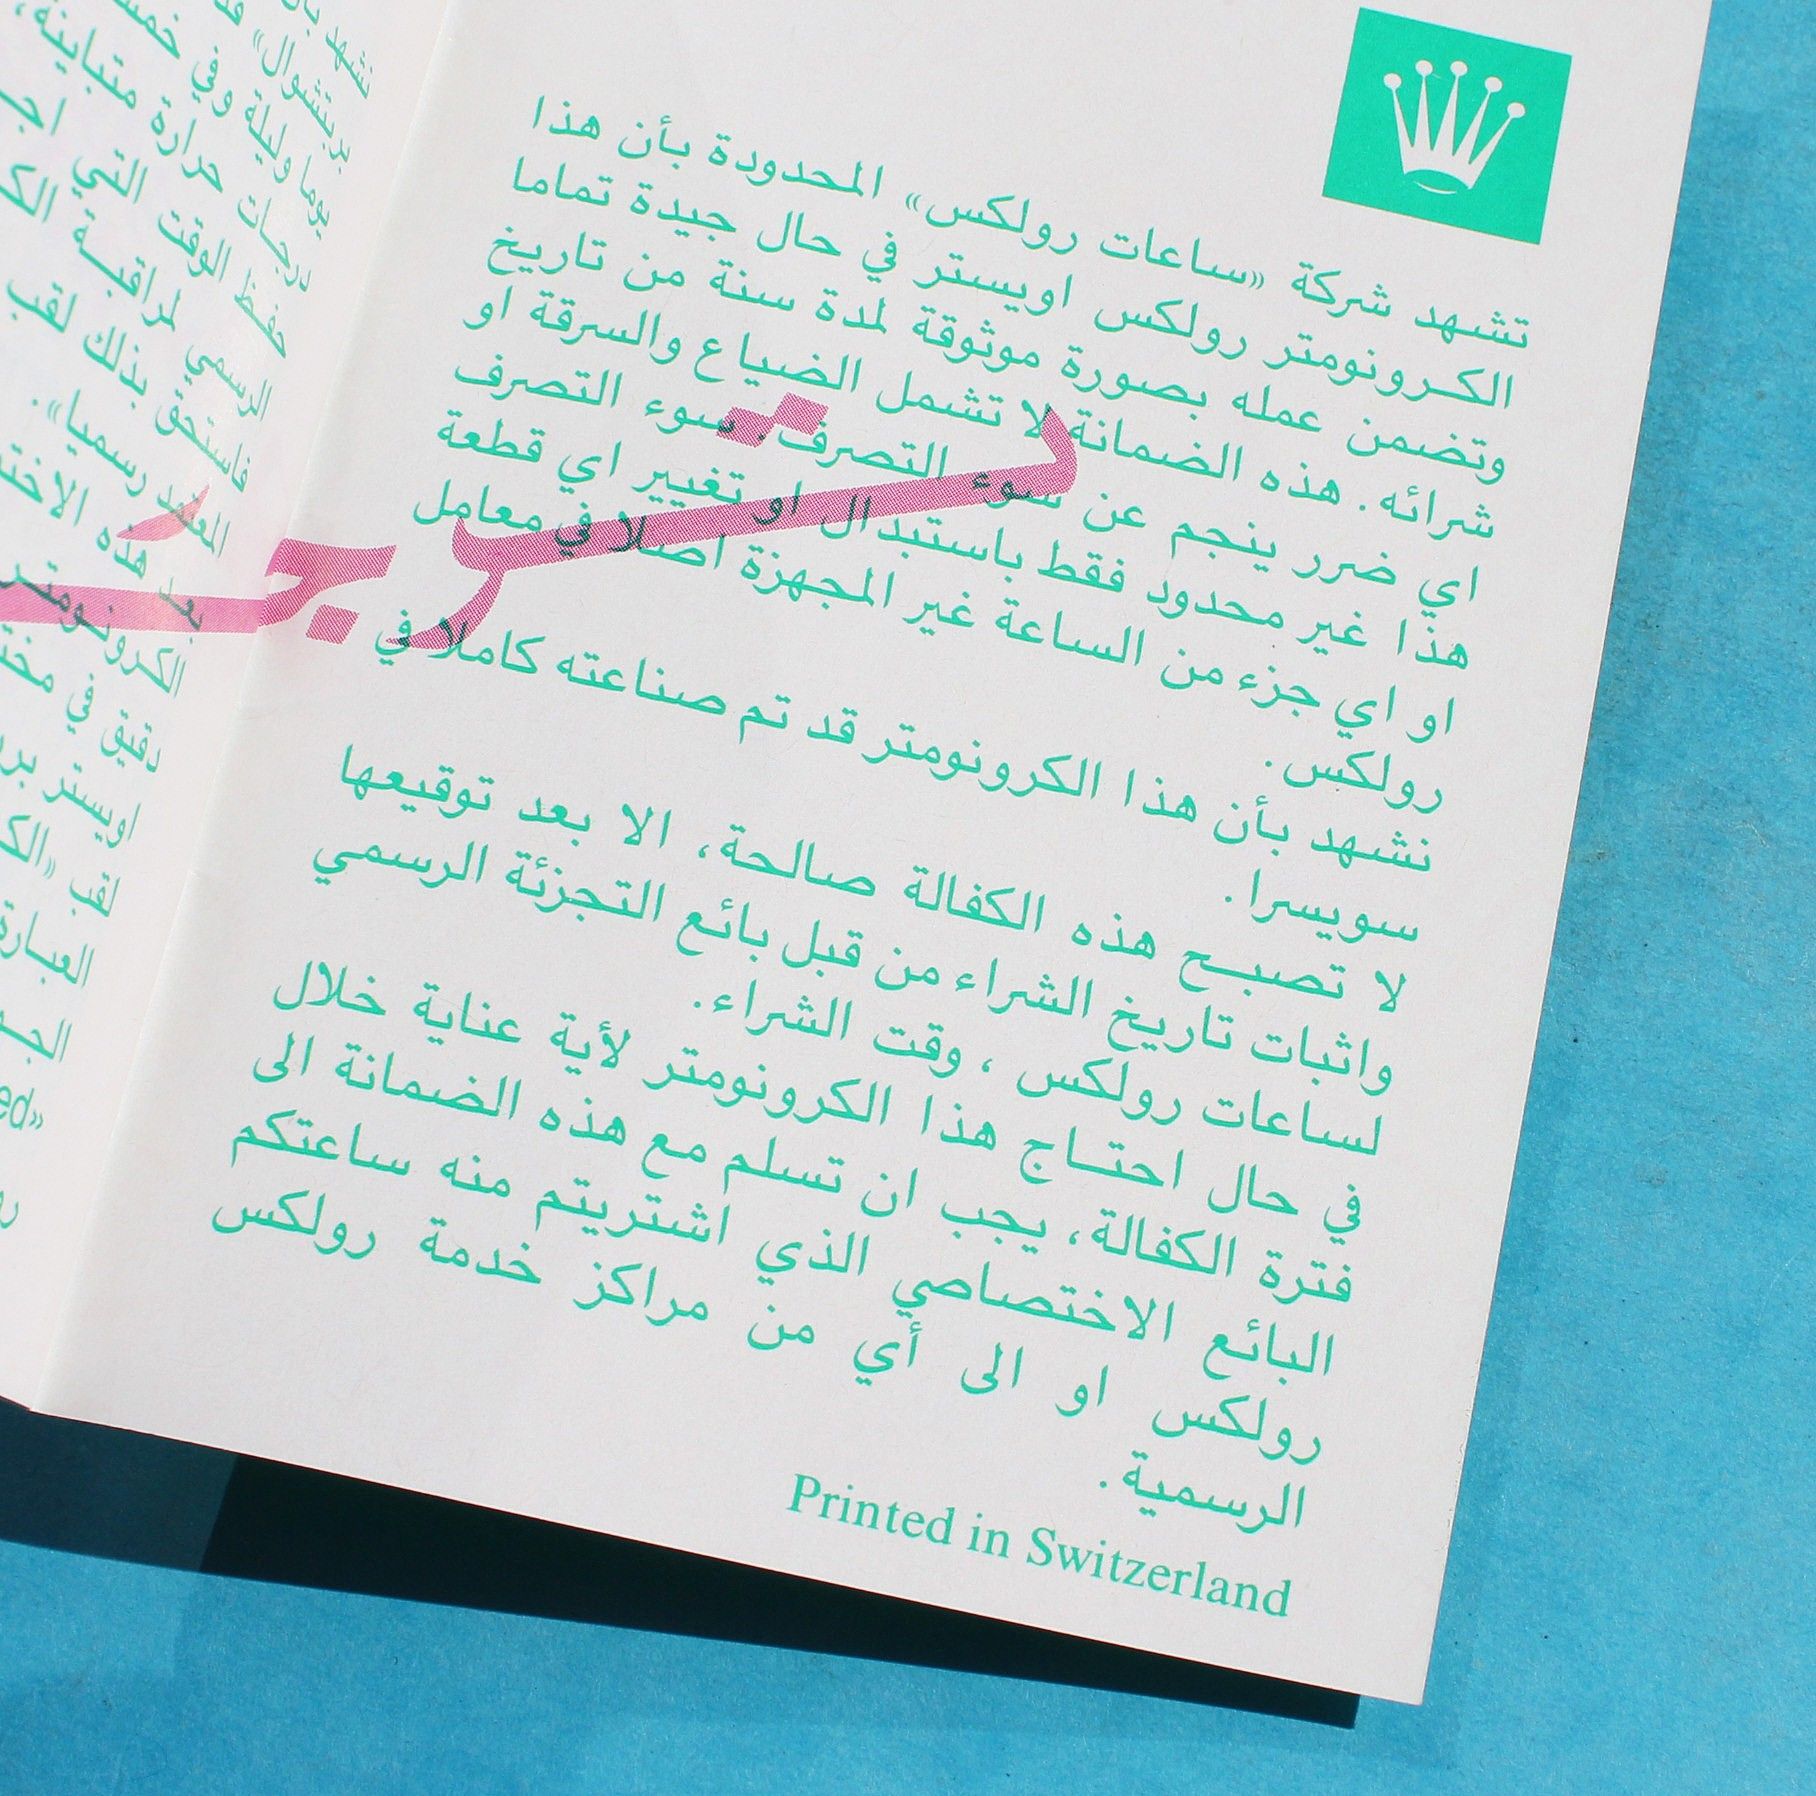 تشهد شركة «ساعات رولكس» المحدودة بأن هذا
الكرونومتر رولكس اويستر في حال جيدة تماما
وتضمن عمله بصورة موثوقة لمدة سنة من تاريخ
شرائه. هذه الضمانة لا تشمل الضياع والسرقة او
اي ضرر ينجم عن سوء التصرف. سوء التصرف
هذا غير محدود فقط باستبدال او تغيير اي قطعة
او اي جزء من الساعة غير المجهزة اصلا في معامل
رولكس.
نشهد بأن هذا الكرونومتر قد تم صناعته كاملا في
سويسرا.
لا تصبح هذه الكفالة صالحة، الا بعد توقيعها
واثبات تاريخ الشراء من قبل بائع التجزئة الرسمي
لساعات رولكس، وقت الشراء.
في حال احتاج هذا الكرونومتر لأية عناية خلال
فترة الكفالة، يجب ان تسلم مع هذه الضمانة الى
البائع الاختصاصي الذي اشتريتم منه ساعتكم
رولكس او الى أي من مراكز خدمة رولكس
الرسمية.
Printed in Switzerland
نشهد
بربتشوال»
يوما وليلة وفي
درجات حرارة متباينة،
حفظ الوقت التي
الرسمي لمراقبة
فاستحق بذلك لقب
المعتمد رسميا».
بعد هذه
الكرونومتر
دقيق في
اويستر
لقب
العبارة